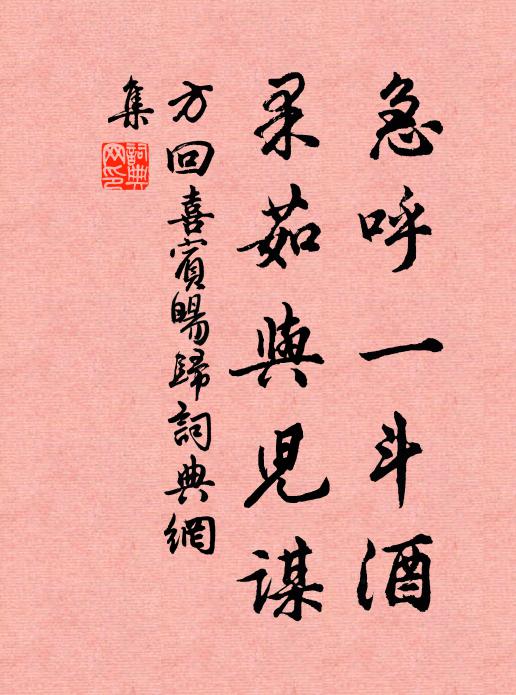 急呼一斗酒
果茹與兒謀
方回喜賓暘歸詞典網
集
詞典网印